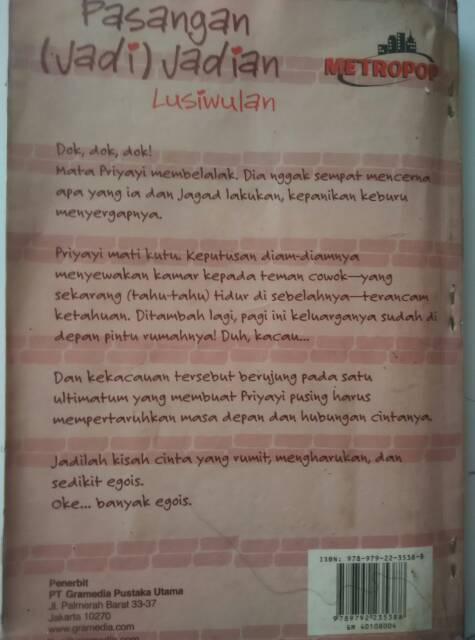 Pasangan
(Jadi) Jadian
Lusiwulan
METROPOP
Dok, dok, dok!
Mata Priyayi membelalak. Dia nggak sempat mencerna
apa yang ia dan Jagad lakukan, kepanikan keburu
menyergapnya.
Priyayi mati kutu. Keputusan diam-diamnya
menyewakan kamar kepada teman cowok—yang
sekarang (tahu-tahu) tidur di sebelahnya—terancam
ketahuan. Ditambah lagi, pagi ini keluarganya sudah di
depan pintu rumahnya! Duh, kacau...
Dan kekacauan tersebut berujung pada satu
ultimatum yang membuat Priyayi pusing harus
mempertaruhkan masa depan dan hubungan cintanya.
Jadilah kisah cinta yang rumit, mengharukan, dan
sedikit egois.
Oke... banyak egois.
ISBN: 978-979-22-3538-8
9789792235388
GM 40108004
Penerbit
PT Gramedia Pustaka Utama
Jl. Palmerah Barat 33-37
Jakarta 10270
www.gramedia.com